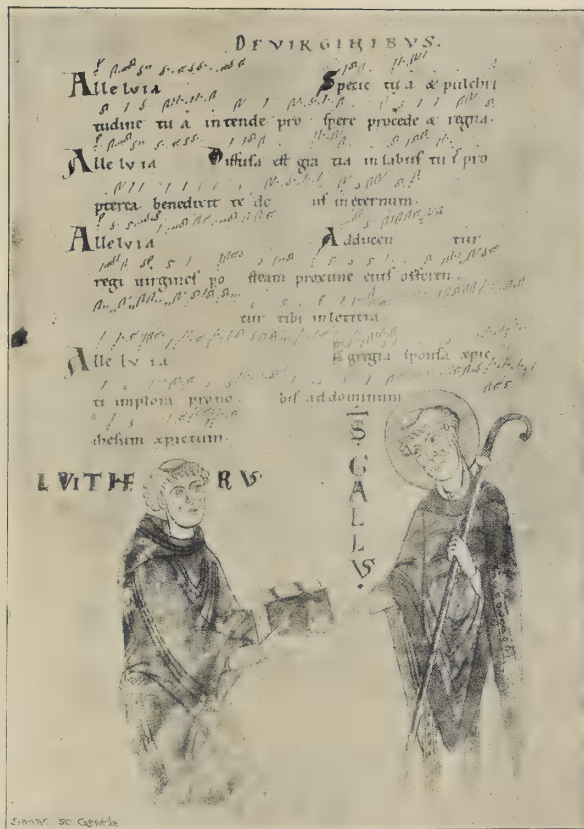 DE VIRGINIBVS.
Alleluia Specie tu a & pulchri
tudine tu a intende pro spere procede & regna.
Alle lv ia Diffusa est gra tia in labiis tu is pro
pterea benedixit te de us in eternum.
Alleluia Adducen tur
regi uirgines po steam proxime eius offeren
tur tibi in letitia.
Alle lv ia Egregia sponsa xpic
ti implora pro no bis ad dominum
ihesum xpictum.
LVITHE RVS
S GALLVS.